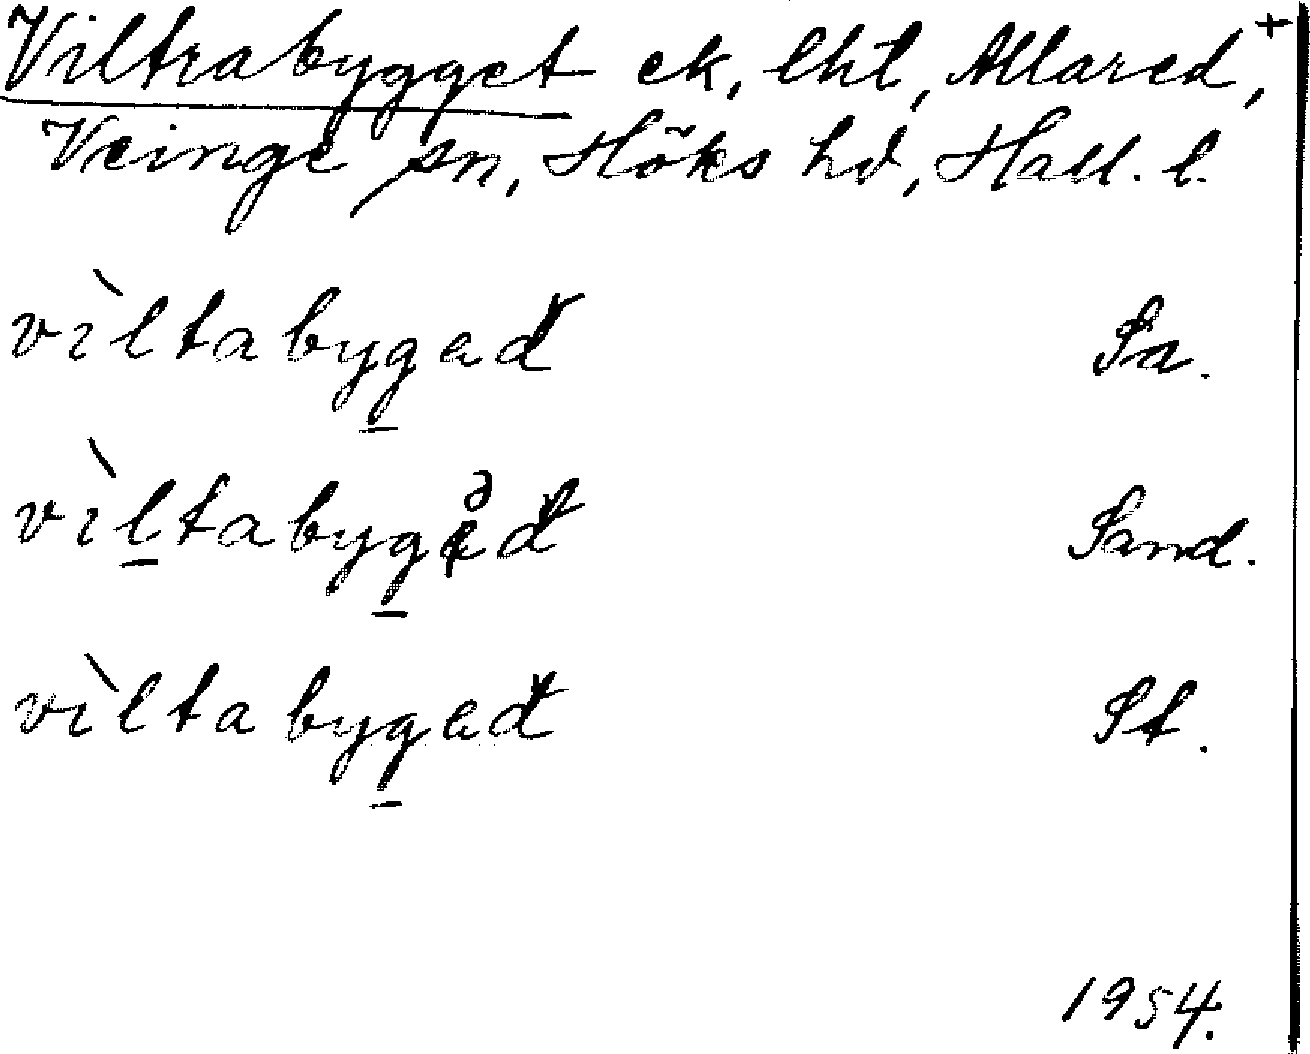 Viltrabygget ek, lht, Allared, +
Veinge sn, Höks hd, Hall. l.
vìltabygad Sa.
vìltabygəd Sand.
vìltabygad St.
1954.